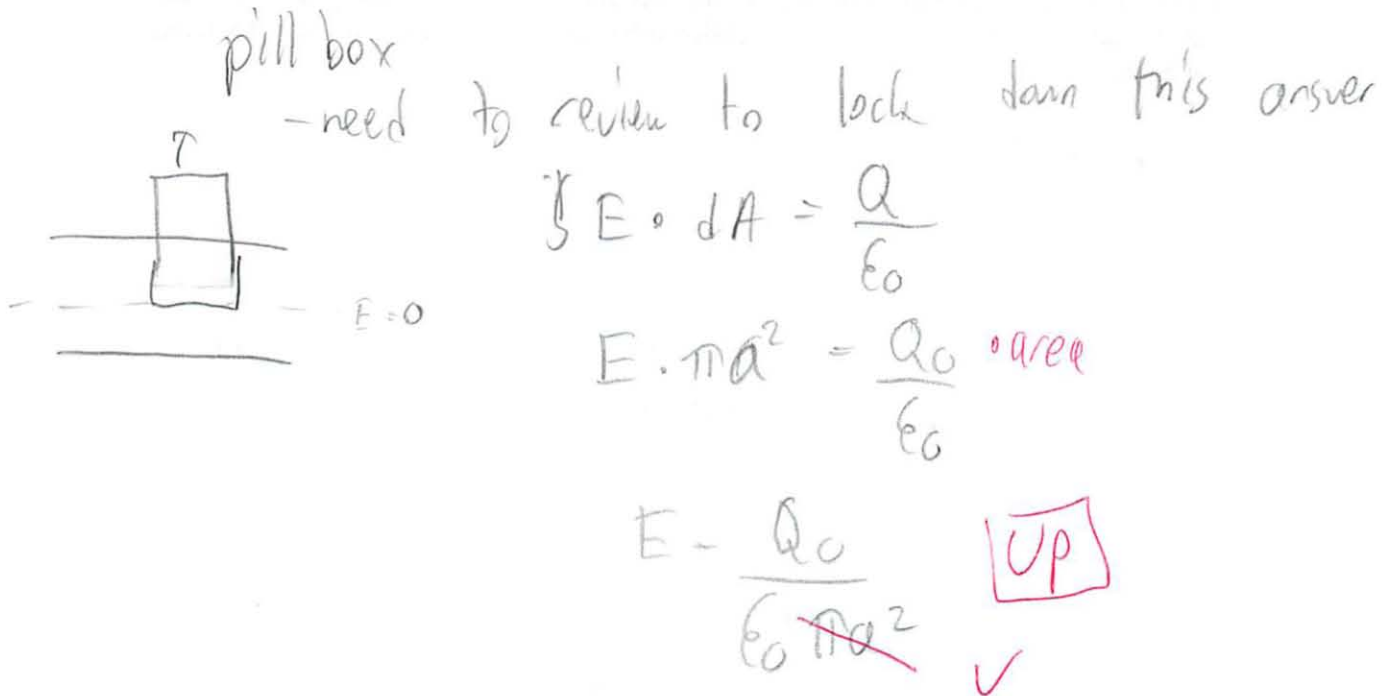 pill box
-need to review to lock down this answer
↑
∮ E • dA = Q / ε0
E = 0
E • πa² = Q0 / ε0 • area
E = Q0 / ε0 πa²
UP
✓